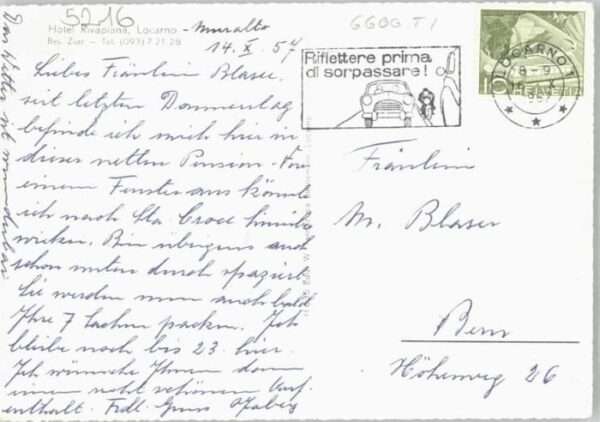 5216
GGOG TI
Hotel Rivapiana, Locarno - Muralto
Bes. Zurr - Tel. (093) 7 21 28
14. X. 57
Liebes Fräulein Blaser.
seit letzten Donnerstag
befinde ich mich hier in
dieser netten Pension. Von
einem Fenster aus könnte
ich nach Sta. Croce hinüber
winken. Bin übrigens auch
schon unten durch spaziert
Sie werden nun auch bald
Ihre 7 Sachen packen. Ich
bleibe noch bis 23. hier.
Ich wünsche Ihnen dann
einen recht schönen Auf-
enthalt. Frdl. Gruss
Das Wetter ist wunderbar
Riflettere prima
di sorpassare!
LOCARNO 1
10
Fräulein
M. Blaser
Bern
Höheweg 26